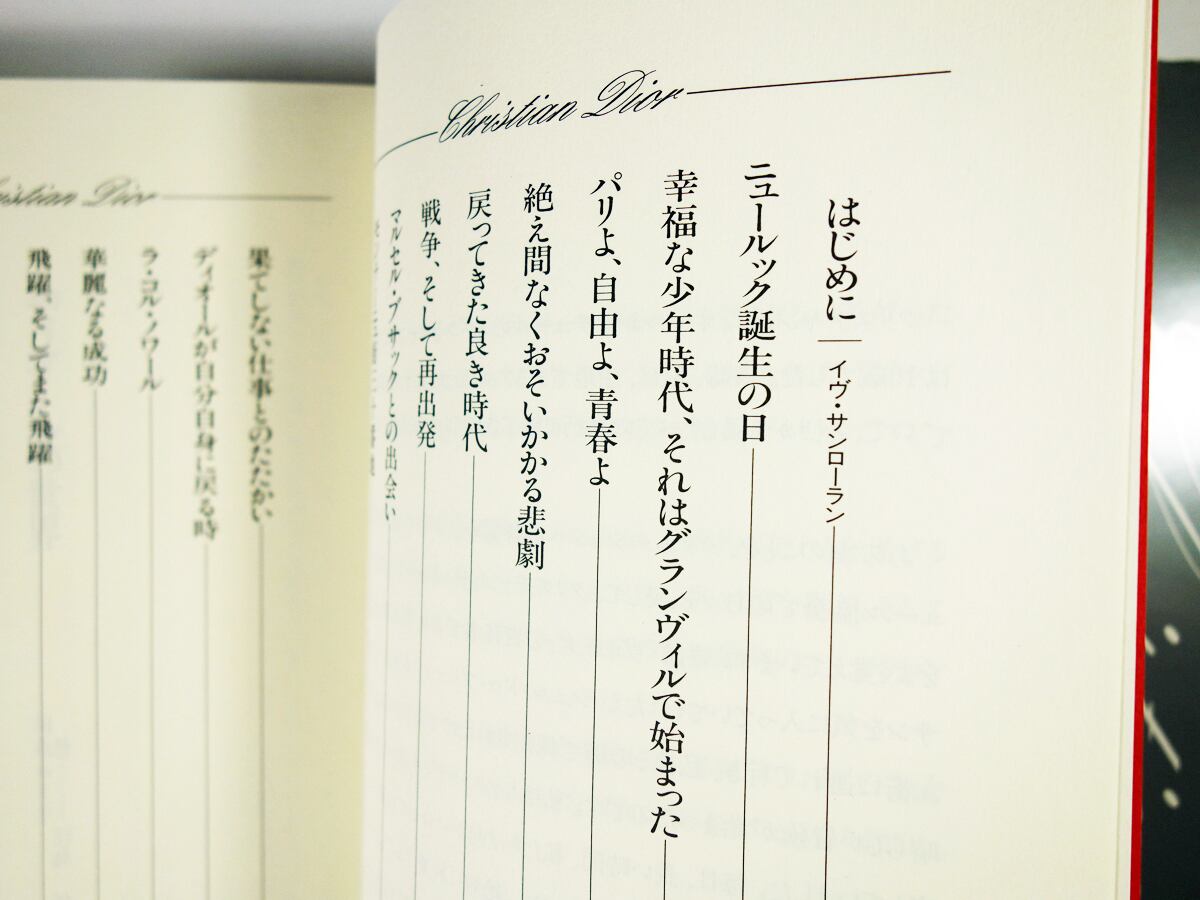 Christian Dior
はじめに―イヴ・サンローラン
ニュールック誕生の日
幸福な少年時代、それはグランヴィルで始まった
パリよ、自由よ、青春よ
絶え間なくおそいかかる悲劇
戻ってきた良き時代
戦争、そして再出発
マルセル・ブサックとの出会い
Christian Dior
果てしない仕事とのたたかい
ディオールが自分自身に戻る時
ラ・コル・ノワール
華麗なる成功
飛躍、そしてまた飛躍